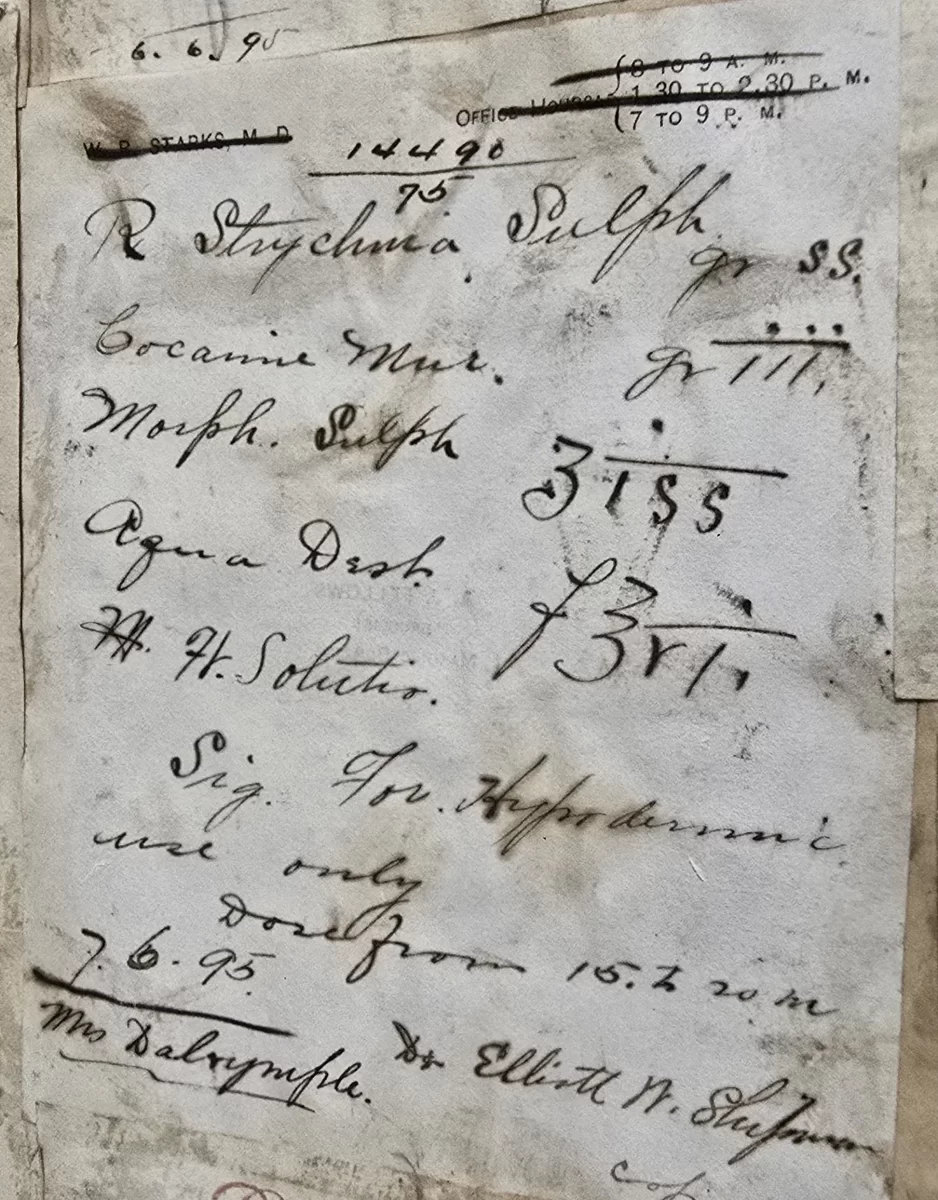 6. 6. 95
8 TO 9 A. M.
OFFICE HOURS: 1.30 TO 2.30 P. M.
7 TO 9 P. M.
W. P. STARKS, M. D.
14490
75
℞ Strychnia Sulph
gr ss.
Cocaine Mur. gr iii.
Morph. Sulph ʒiss
Aqua Dest. fʒvi.
M. Ft. Solutio.
Sig. For. Hypodermic.
use only
Dose from 15. to 20 m
7. 6. 95
Mrs Dalrymple.
Dr Elliott W. Shipman